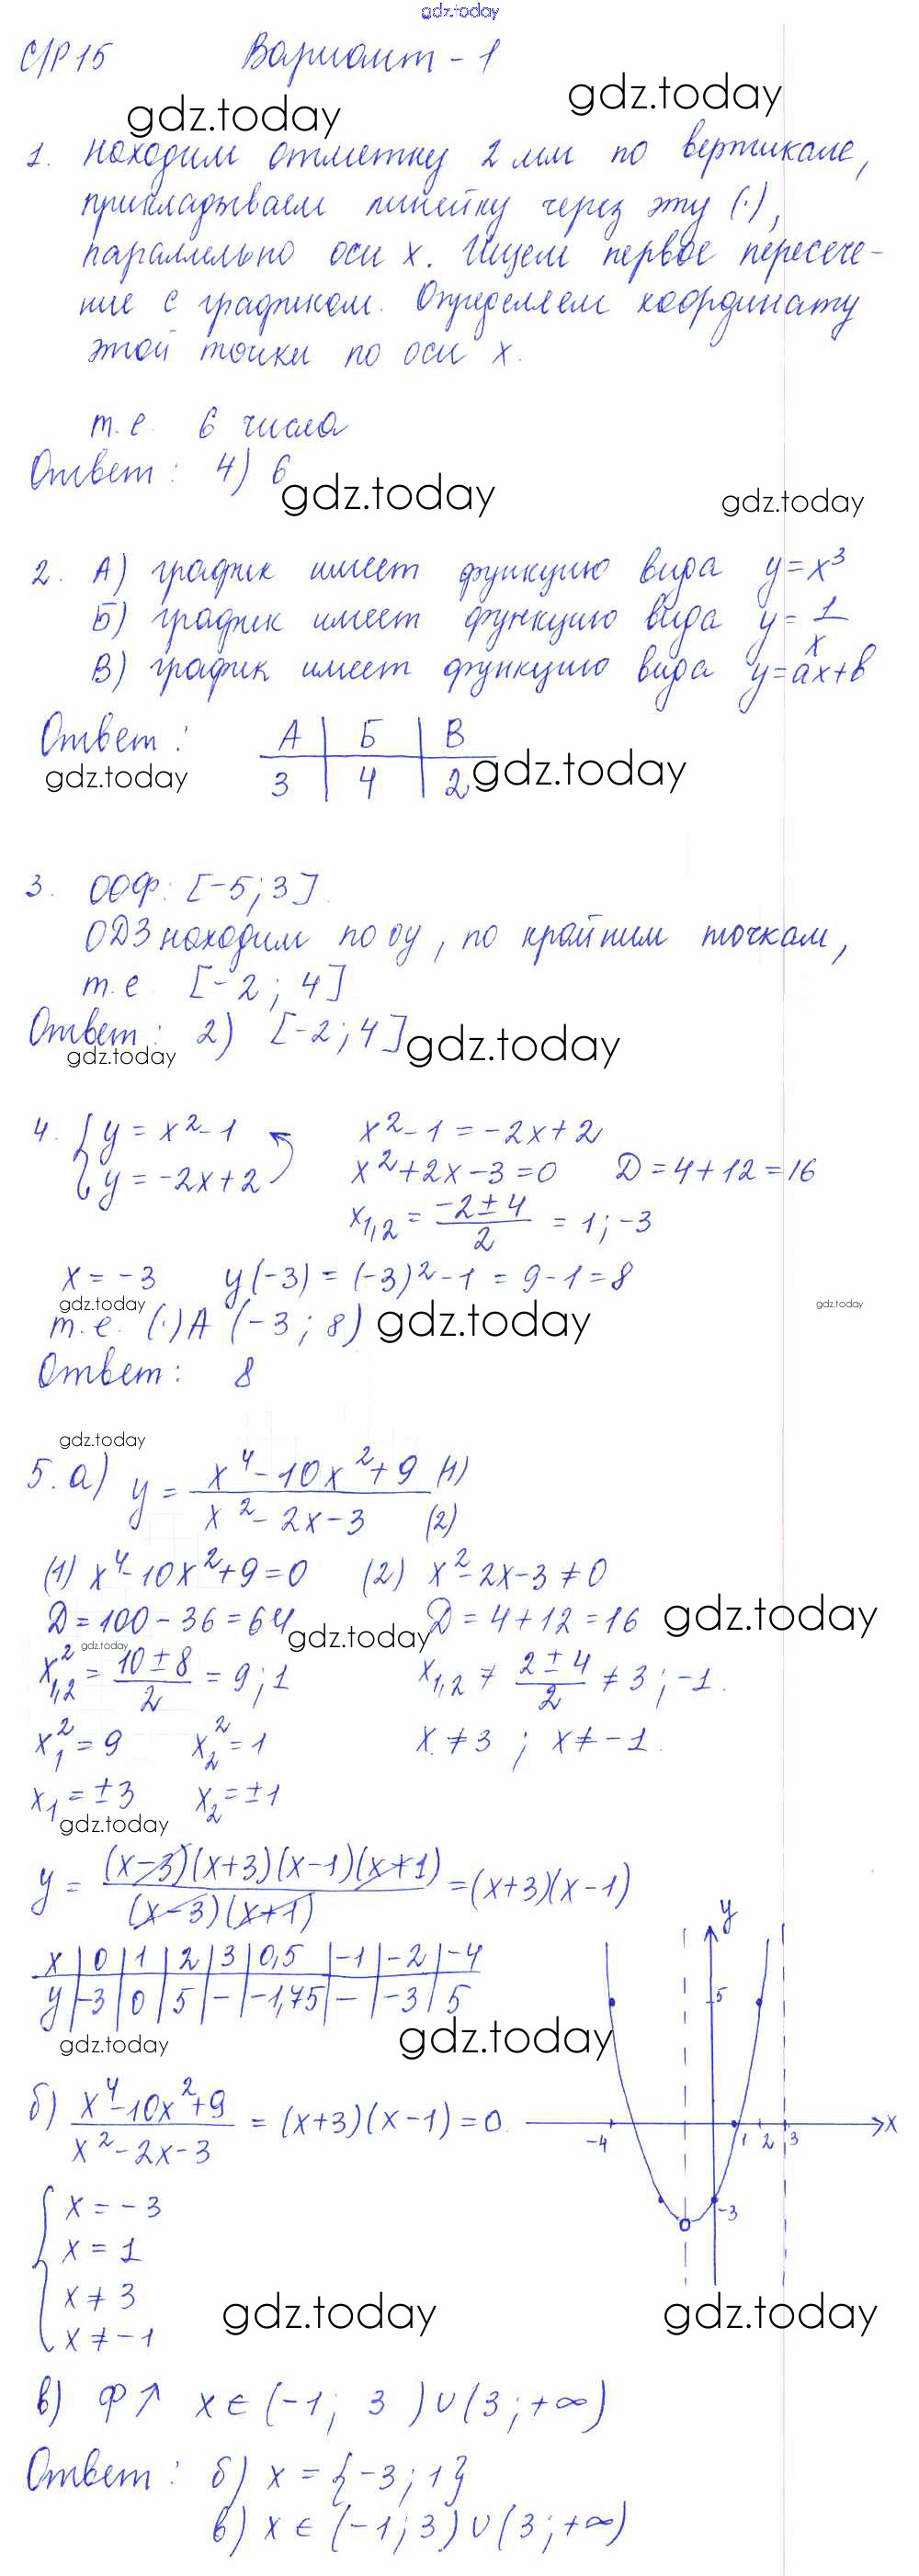 gdz.today
С/Р 15 Вариант - 1
gdz.today gdz.today
1. Находим отметку 2 мм по вертикале,
прикладываем линейку через эту (·),
параллельно оси х. Ищем первое пересече-
ние с графиком. Определяем координату
этой точки по оси х.
т.е. 6 числа
Ответ: 4) 6
gdz.today gdz.today
2. А) график имеет функцию вида y = x³
Б) график имеет функцию вида y = 1/x
В) график имеет функцию вида y = ax + b
Ответ: А | Б | В
gdz.today 3 | 4 | 2 gdz.today
3. ООФ: [-5; 3].
ОДЗ находим по оу, по крайним точкам,
т.е. [-2; 4]
Ответ: 2) [-2; 4] gdz.today
gdz.today
4. { y = x² - 1 x² - 1 = -2x + 2
{ y = -2x + 2 x² + 2x - 3 = 0 Д = 4 + 12 = 16
x₁,₂ = (-2 ± 4)/2 = 1; -3
x = -3 y(-3) = (-3)² - 1 = 9 - 1 = 8
gdz.today gdz.today
т.е. (·) А (-3; 8) gdz.today
Ответ: 8
gdz.today
5. а) y = (x⁴ - 10x² + 9)/(x² - 2x - 3) (1) (2)
(1) x⁴ - 10x² + 9 = 0 (2) x² - 2x - 3 ≠ 0
Д = 100 - 36 = 64 Д = 4 + 12 = 16 gdz.today
gdz.today gdz.today
x²₁,₂ = (10 ± 8)/2 = 9; 1 x₁,₂ ≠ (2 ± 4)/2 ≠ 3; -1.
x₁² = 9 x₂² = 1 x ≠ 3; x ≠ -1.
x₁ = ±3 x₂ = ±1
gdz.today
y = (x-3)(x+3)(x-1)(x+1)/(x-3)(x+1) = (x+3)(x-1)
x | 0 | 1 | 2 | 3 | 0,5 | -1 | -2 | -4
y | -3 | 0 | 5 | - | -1,75 | - | -3 | 5
gdz.today gdz.today
y
5
-4 1 2 3 x
-3
б) (x⁴ - 10x² + 9)/(x² - 2x - 3) = (x+3)(x-1) = 0.
{ x = -3
x = 1
x ≠ 3
x ≠ -1
gdz.today gdz.today
в) Ф↑ x ∈ (-1; 3) ∪ (3; +∞)
Ответ: б) x = {-3; 1}
в) x ∈ (-1; 3) ∪ (3; +∞)